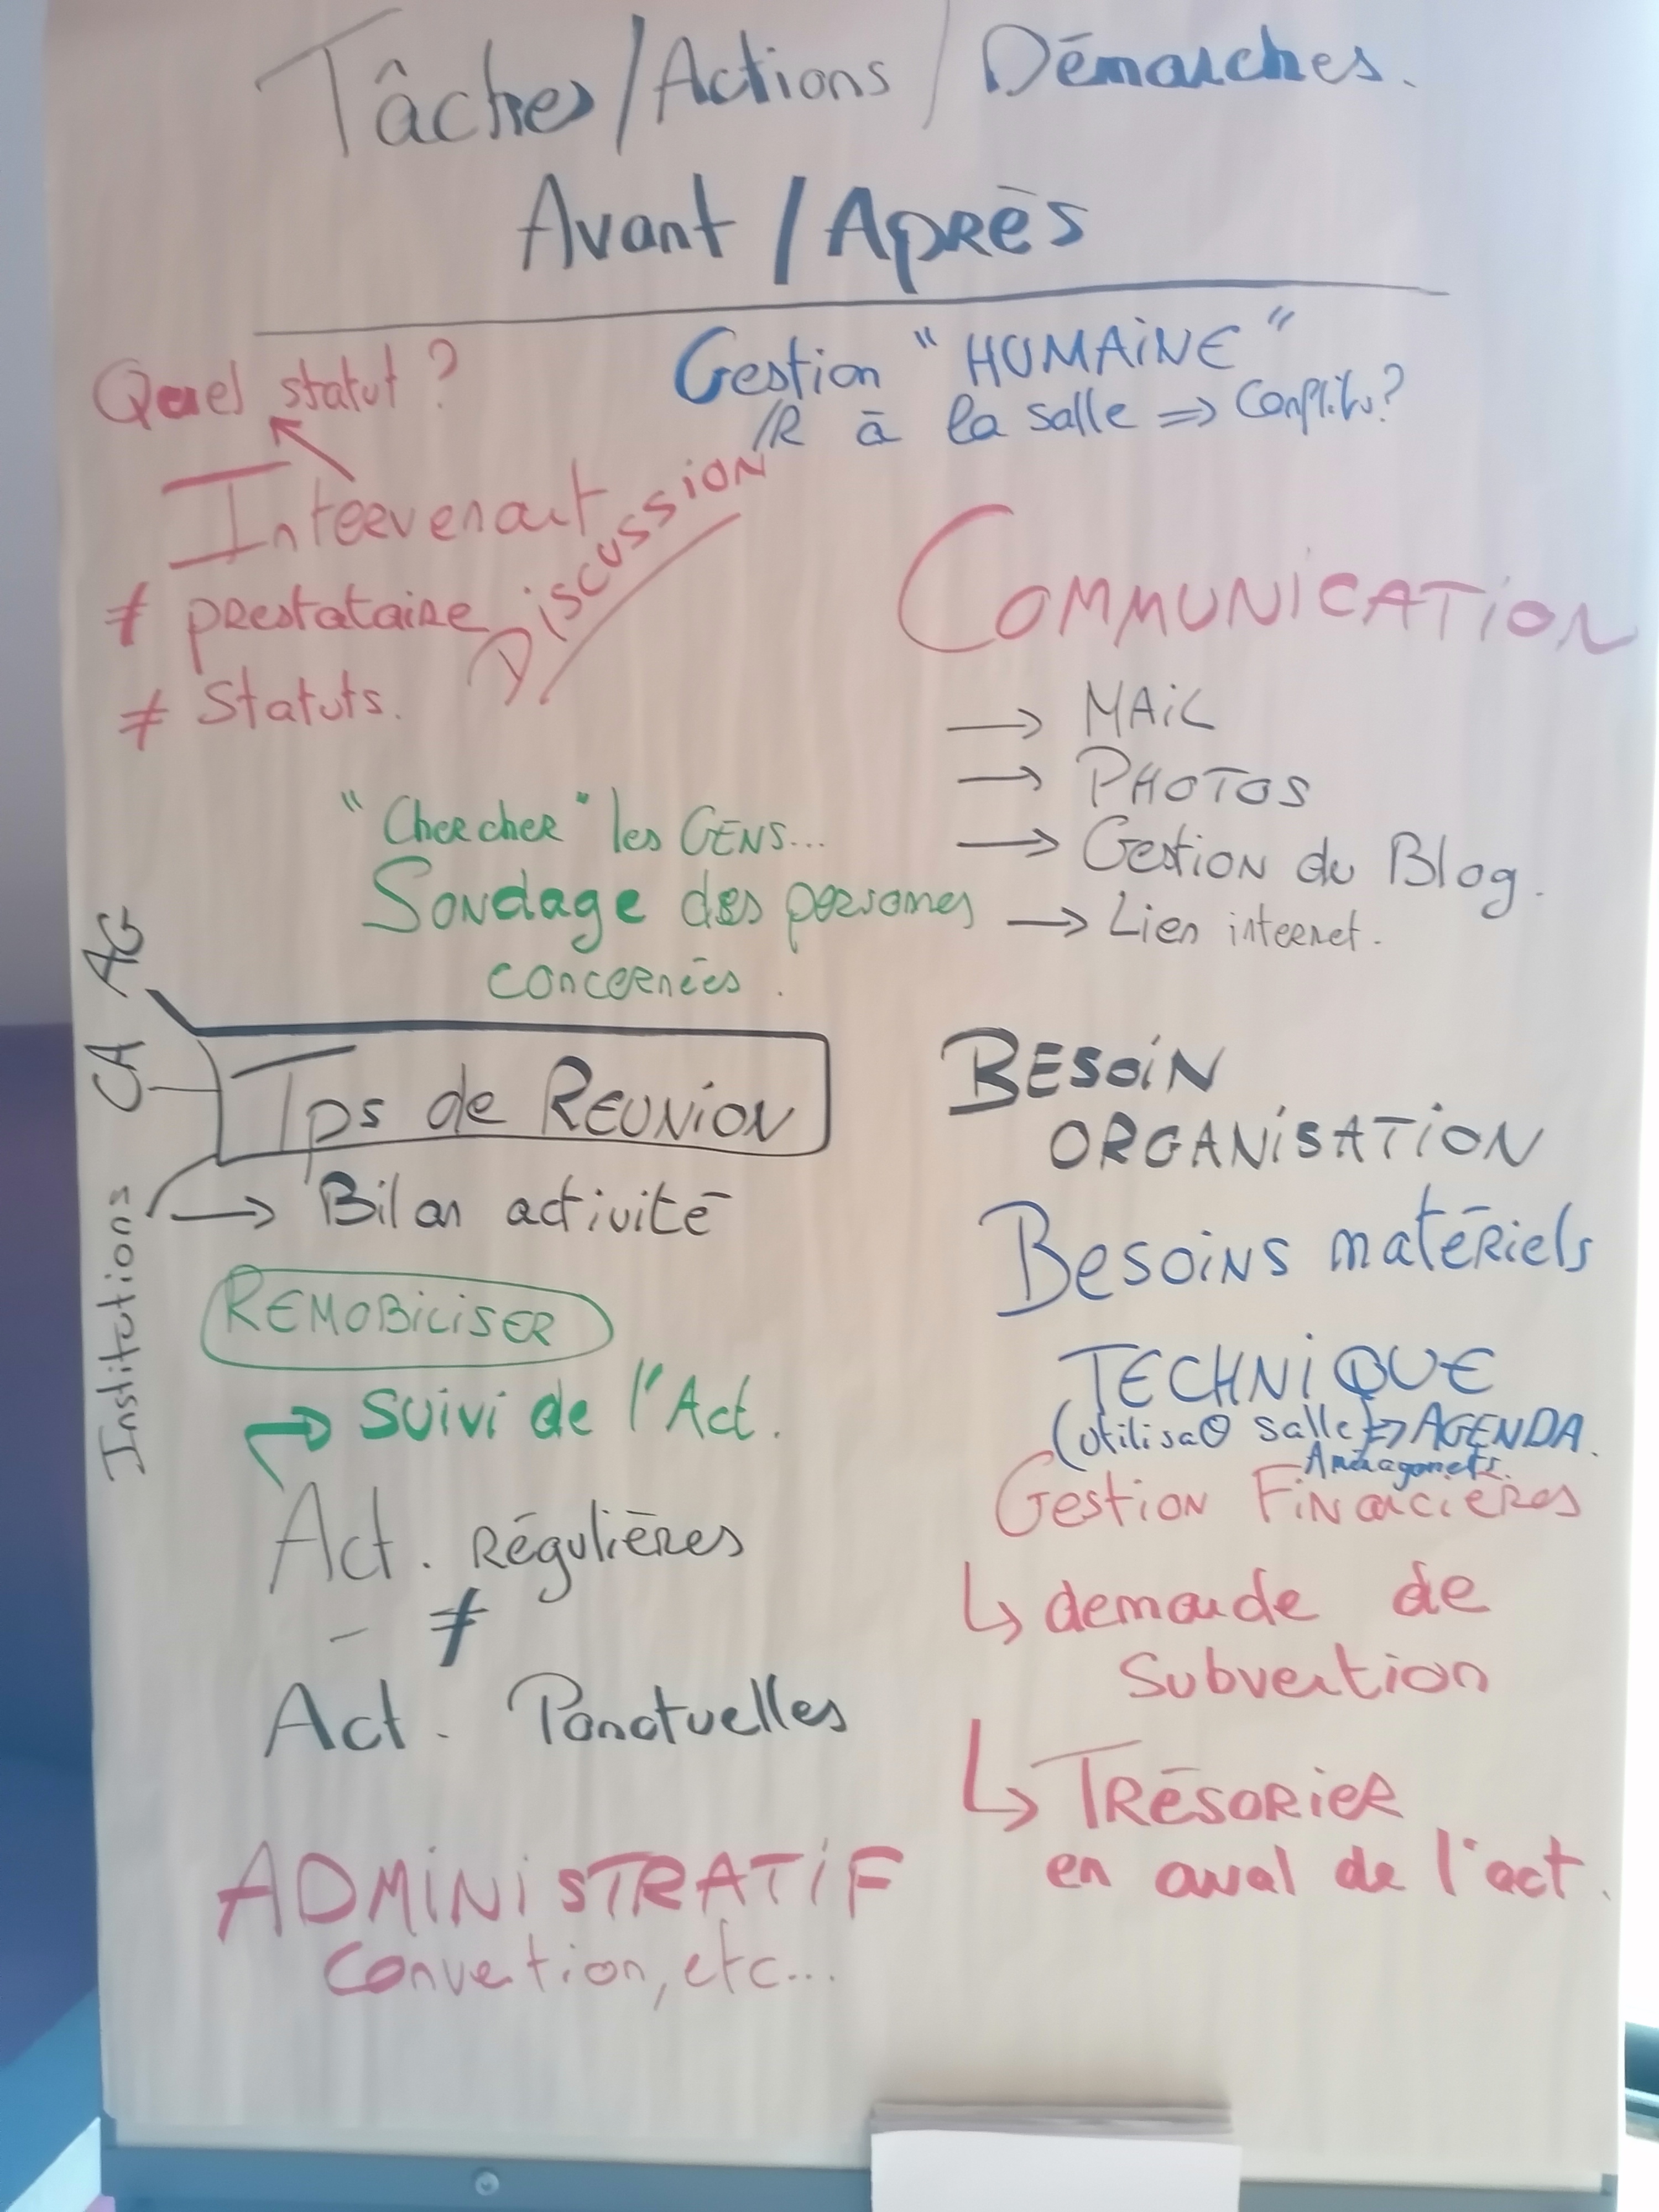 Tâches/Actions/Démarches.
Avant/Après
Quel statut ?
Intervenant
≠ prestataire
≠ Statuts.
Discussion
Gestion "HUMAINE"
/R à la salle => Conflits?
COMMUNICATION
→ MAIL
→ PHOTOS
→ Gestion du Blog.
→ Lien internet.
"Chercher" les GENS...
Sondage des personnes
concernées.
AG
CA
Institutions
Tps de REUNION
→ Bilan activité
REMOBILISER
→ Suivi de l'Act.
Act. Régulières
- ≠
Act. Ponctuelles
ADMINISTRATIF
Convention, etc...
BESOIN
ORGANISATION
Besoins matériels
TECHNIQUE
(utilisaΘ salle) => AGENDA.
Aménagemets.
Gestion Financières
↳ demande de
Subvention
↳ TRÉSORIER
en aval de l'act.